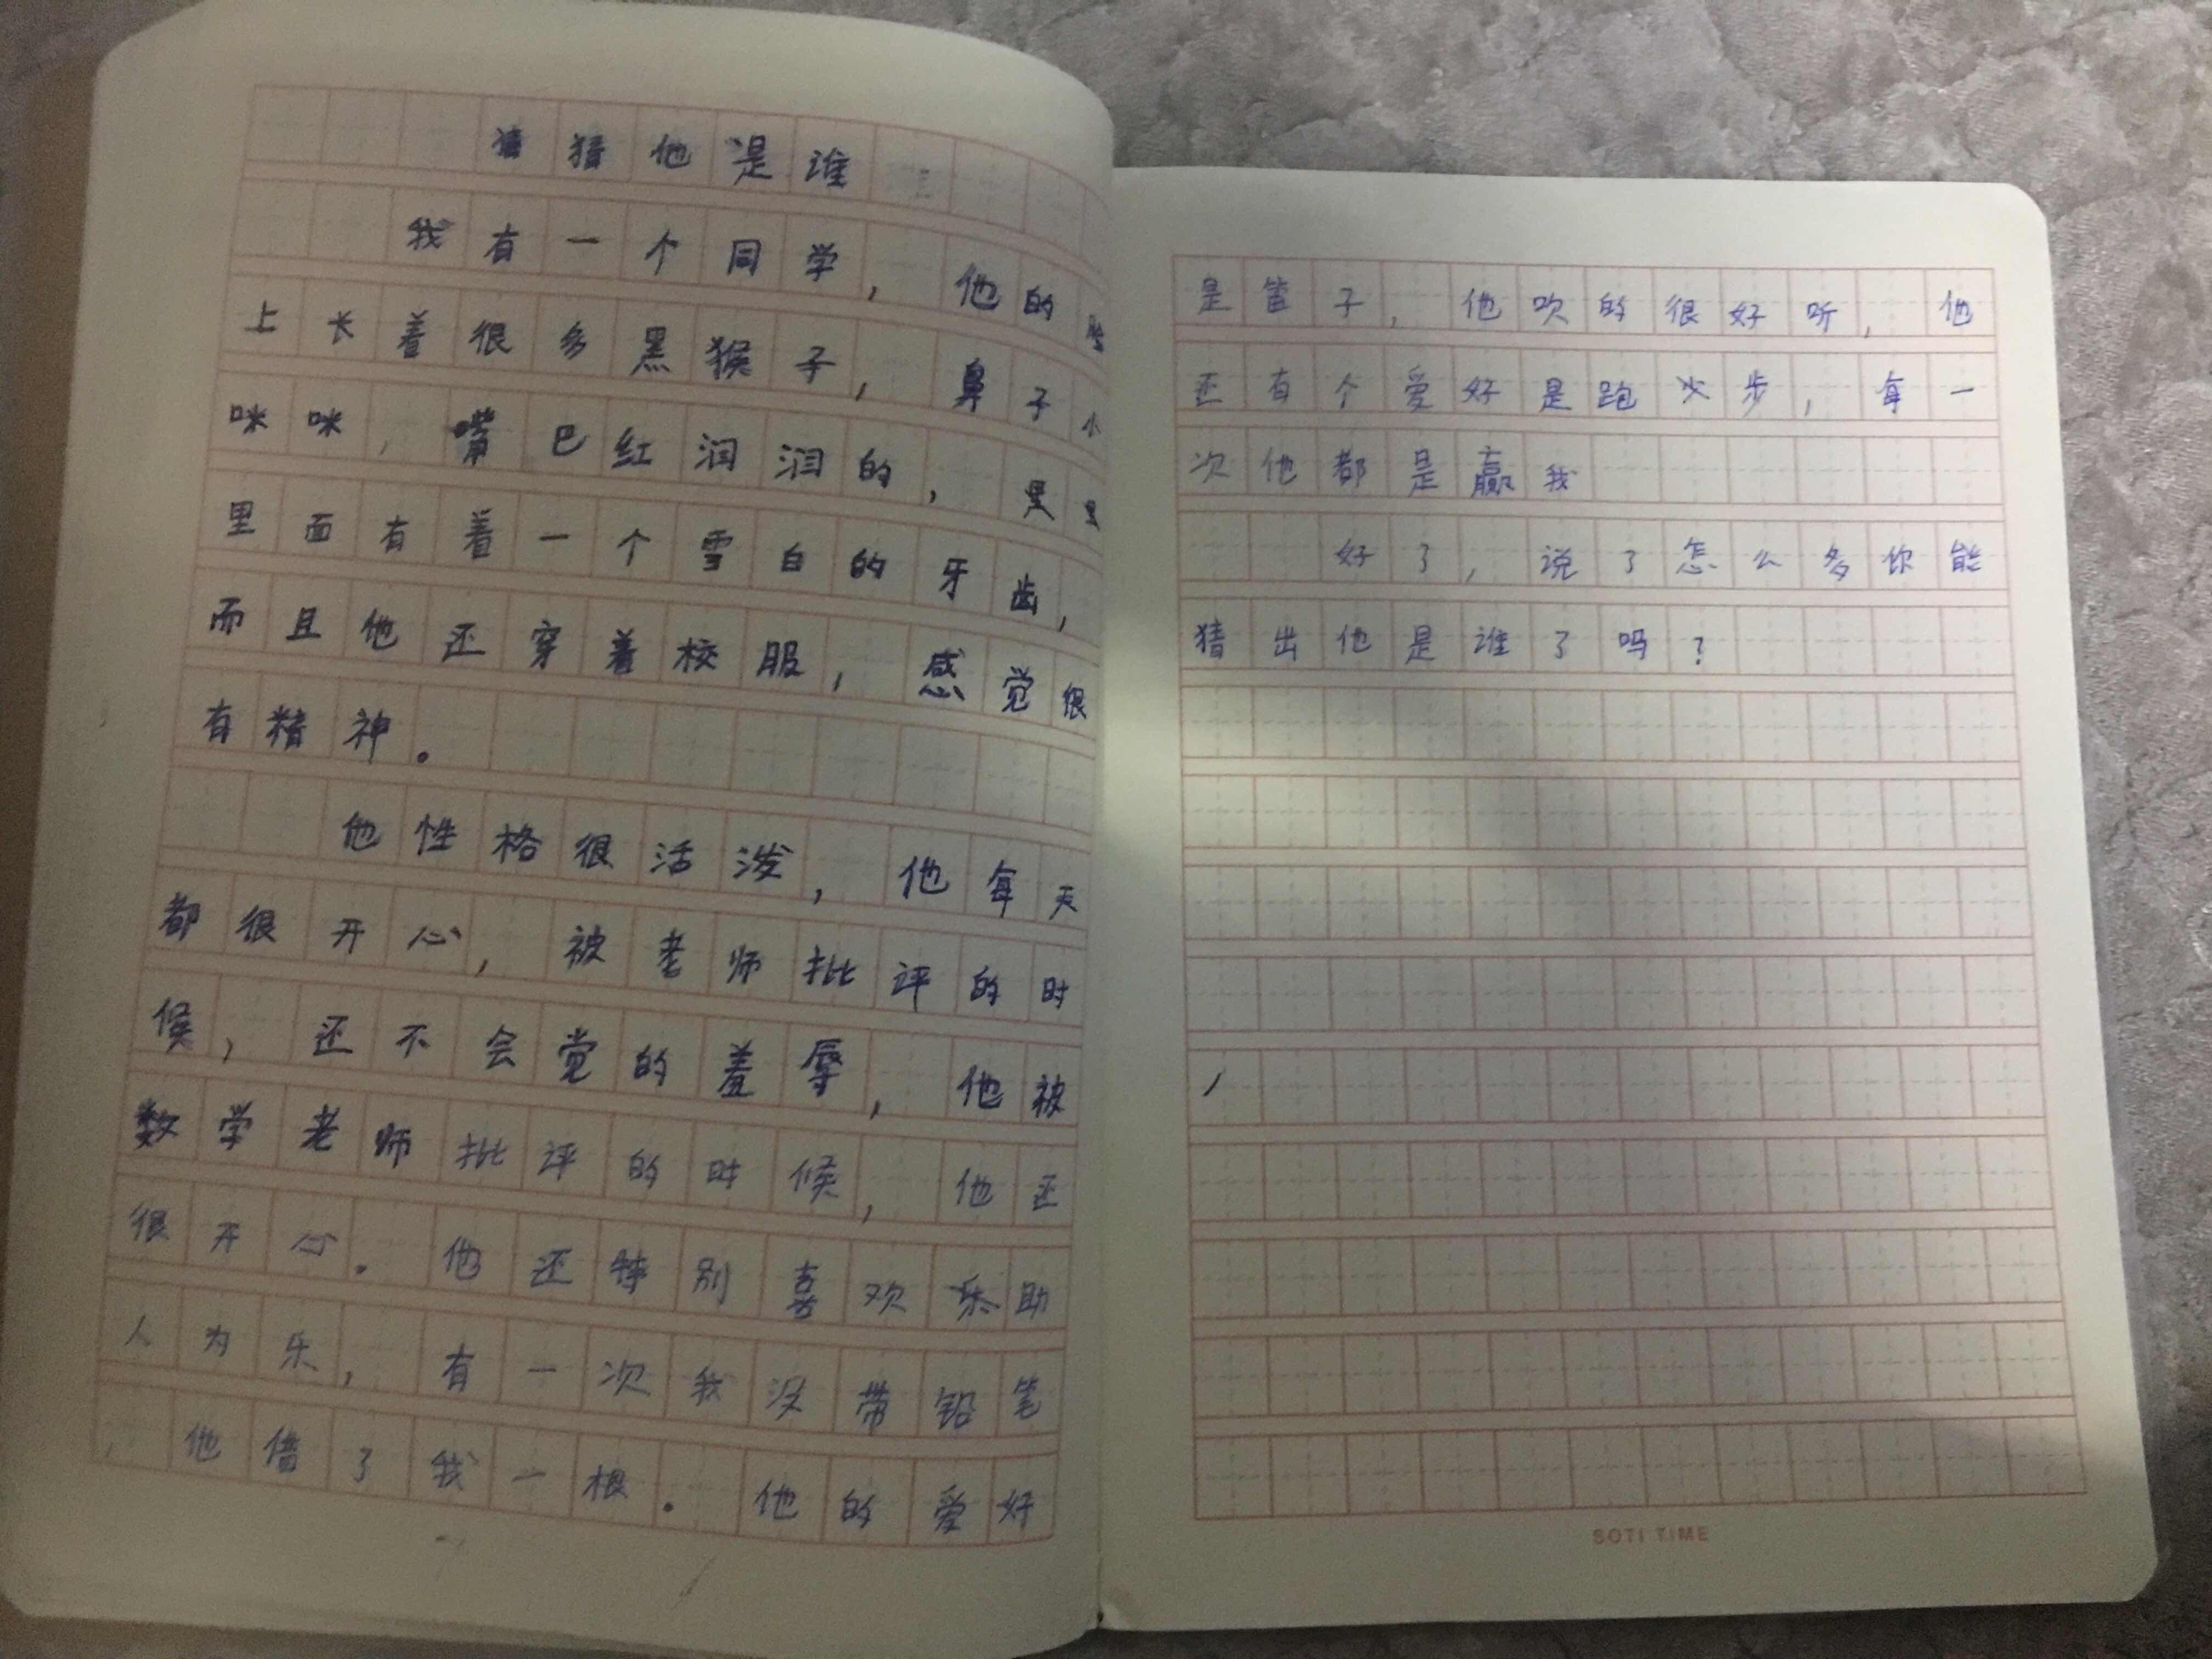 猜猜他是谁
我有一个同学，他的
上长着很多黑猴子，鼻子小
咪咪，嘴巴红润润的，
里面有着一个雪白的牙齿，
而且他还穿着校服，感觉很
有精神。
他性格很活泼，他每天
都很开心，被老师批评的时
候，还不会觉的羞辱，他被
数学老师批评的时候，他还
很开心。他还特别喜欢乐助
人为乐，有一次我没带铅笔
，他借了我一根。他的爱好
是笛子，他吹的很好听，他
还有个爱好是跑步，每一
次他都是赢我
好了，说了怎么多你能
猜出他是谁了吗？
SOTI TIME